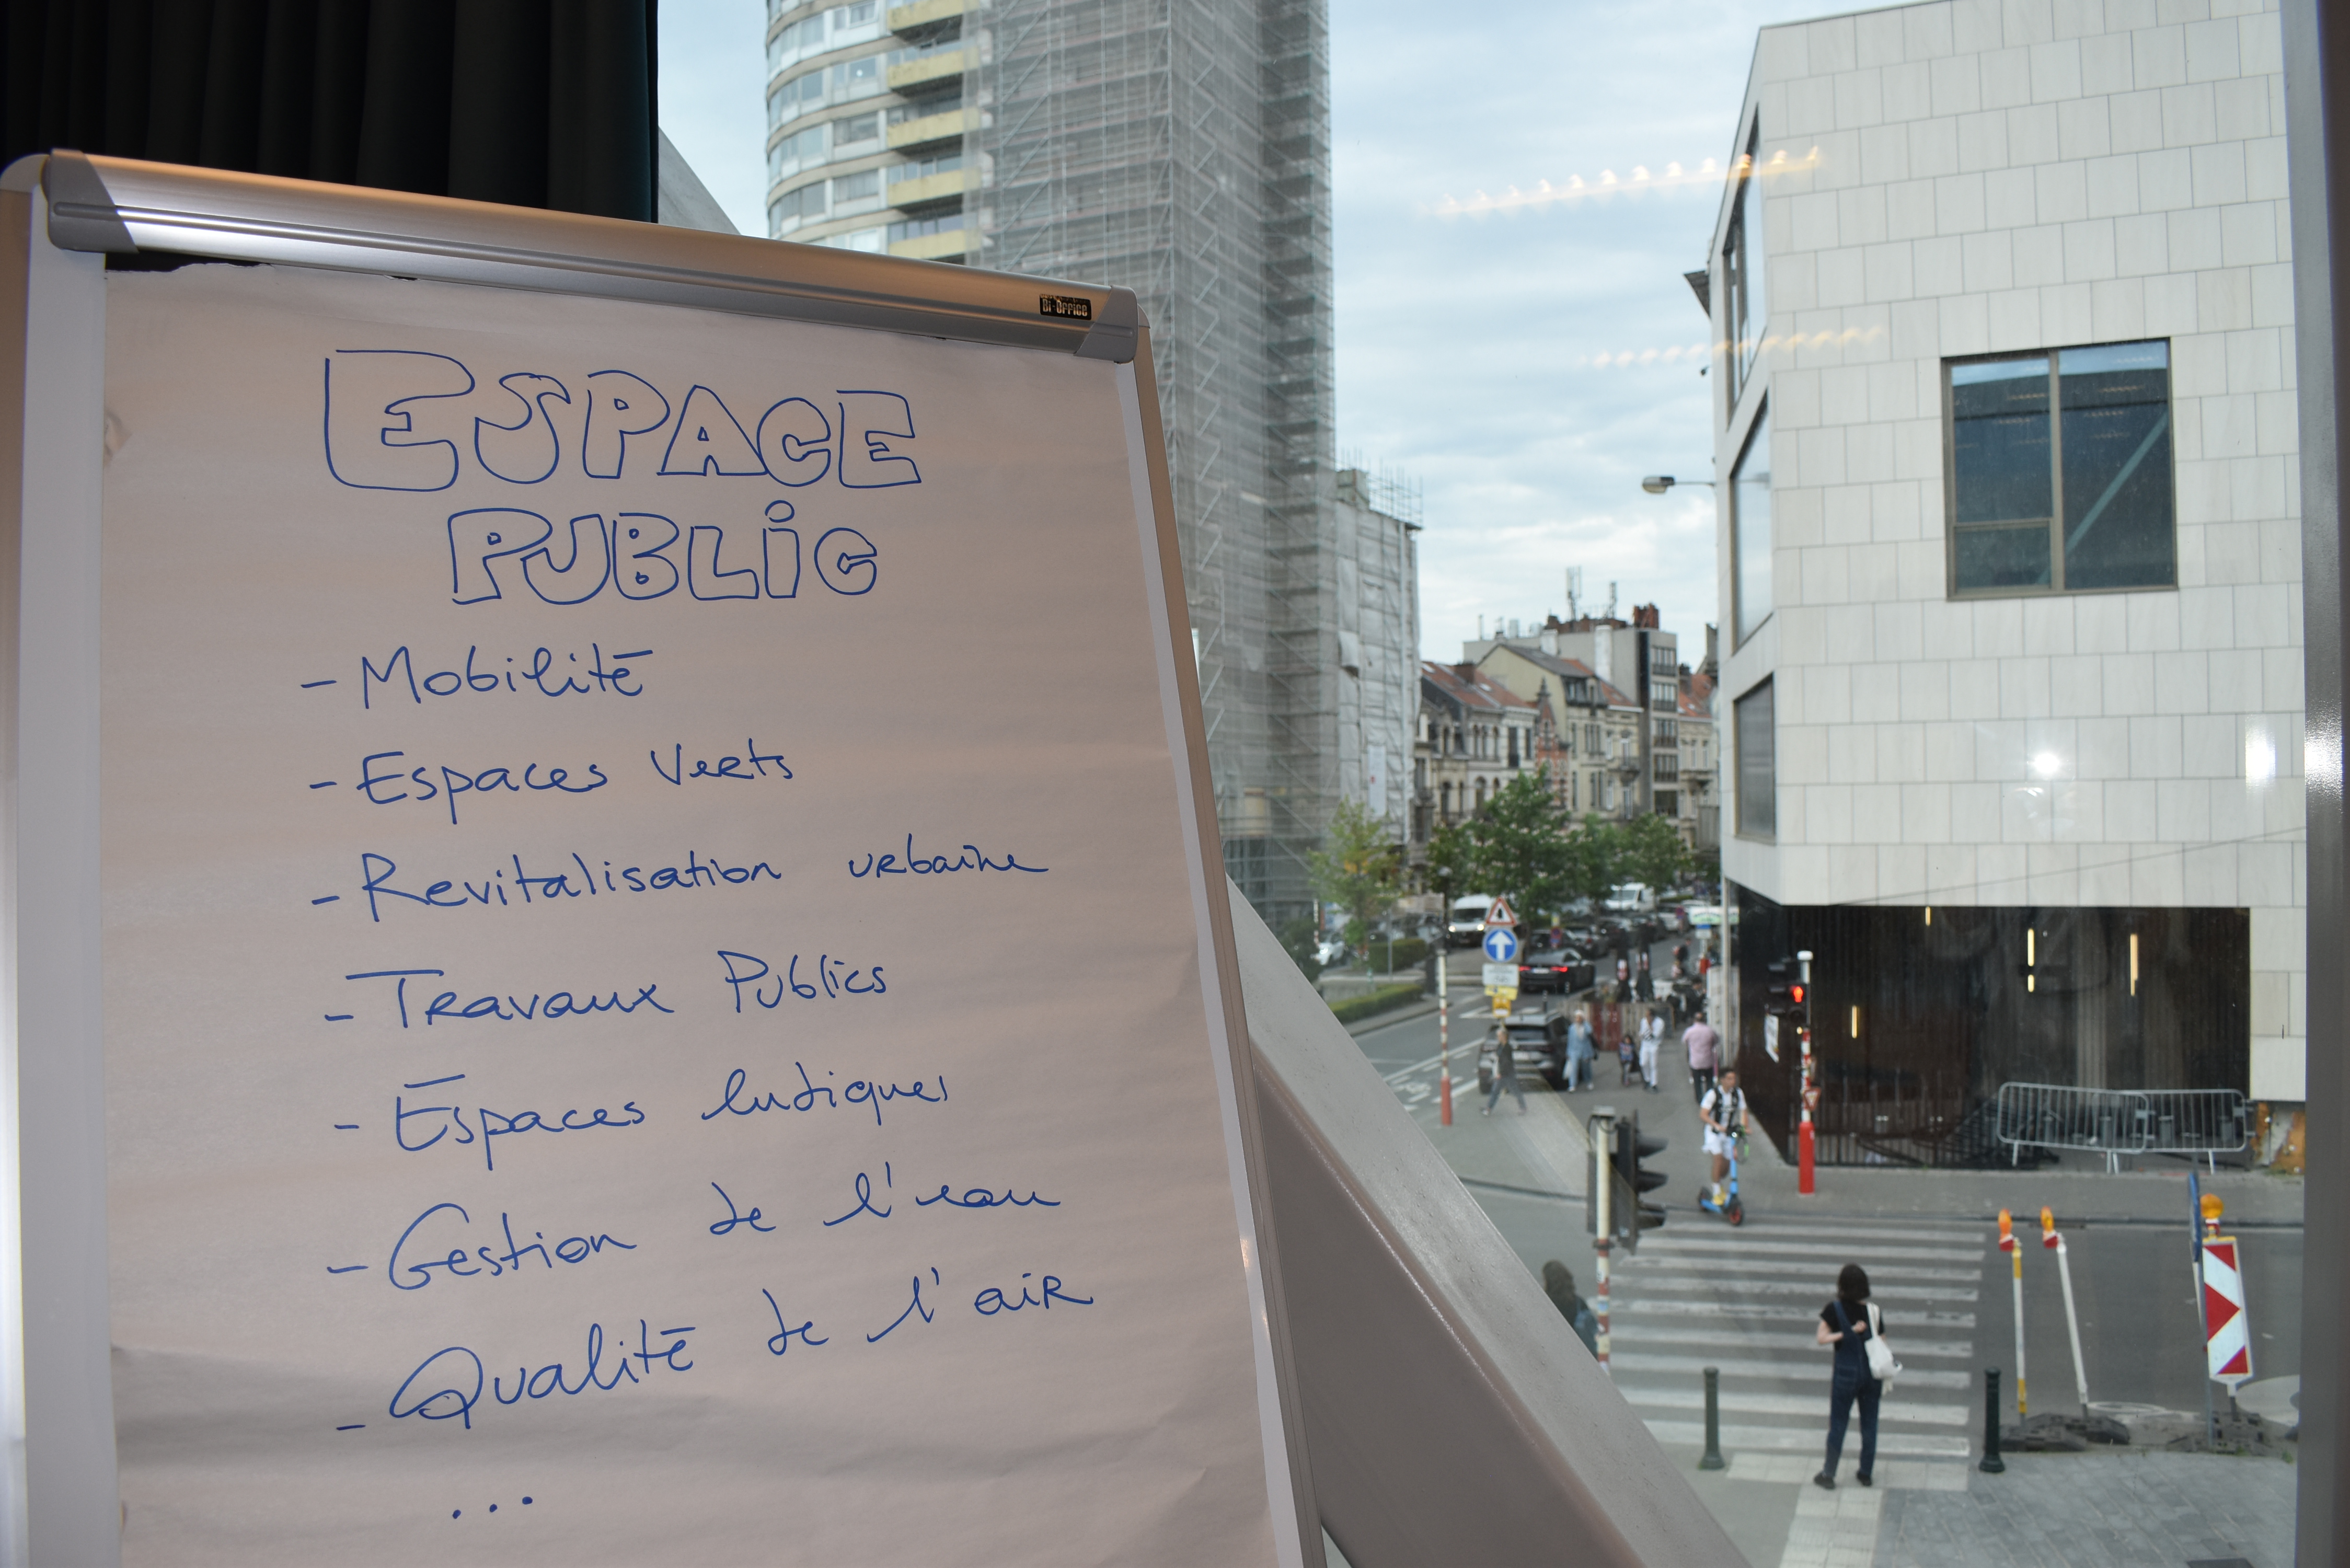 Bi-Office
ESPACE
PUBLIC
- Mobilité
- Espaces Verts
- Revitalisation urbaine
- Travaux Publics
- Espaces ludiques
- Gestion de l'eau
- Qualité de l'air
...